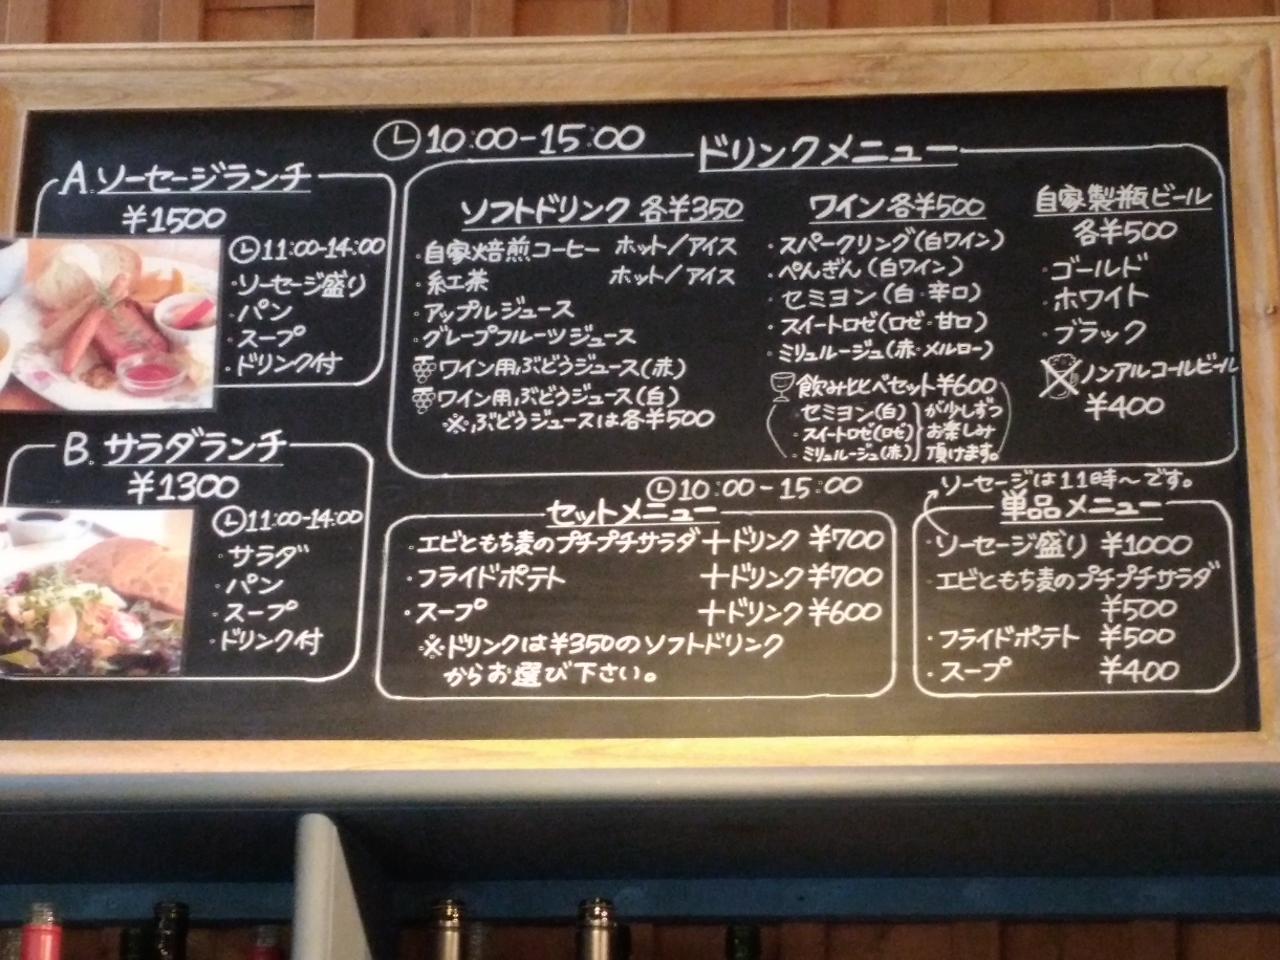 10:00-15:00
A.ソーセージランチ
¥1500
11:00-14:00
・ソーセージ盛り
・パン
・スープ
・ドリンク付
B.サラダランチ
¥1300
11:00-14:00
・サラダ
・パン
・スープ
・ドリンク付
ドリンクメニュー
ソフトドリンク 各¥350
・自家焙煎コーヒー ホット/アイス
・紅茶 ホット/アイス
・アップルジュース
・グレープフルーツジュース
ワイン用ぶどうジュース(赤)
ワイン用ぶどうジュース(白)
※ぶどうジュースは各¥500
ワイン各¥500
・スパークリング(白ワイン)
・ぺんぎん(白ワイン)
・セミヨン(白・辛口)
・スイートロゼ(ロゼ・甘口)
・ミリュルージュ(赤・メルロー)
飲みくらべセット¥600
・セミヨン(白)
・スイートロゼ(ロゼ)
・ミリュルージュ(赤)
が少しずつ
お楽しみ
頂けます。
自家製瓶ビール
各¥500
・ゴールド
・ホワイト
・ブラック
ノンアルコールビール
¥400
10:00-15:00
セットメニュー
・エビともち麦のプチプチサラダ+ドリンク ¥700
・フライドポテト +ドリンク ¥700
・スープ +ドリンク ¥600
※ドリンクは¥350のソフトドリンク
からお選び下さい。
ソーセージは11時〜です。
単品メニュー
・ソーセージ盛り ¥1000
・エビともち麦のプチプチサラダ
¥500
・フライドポテト ¥500
・スープ ¥400